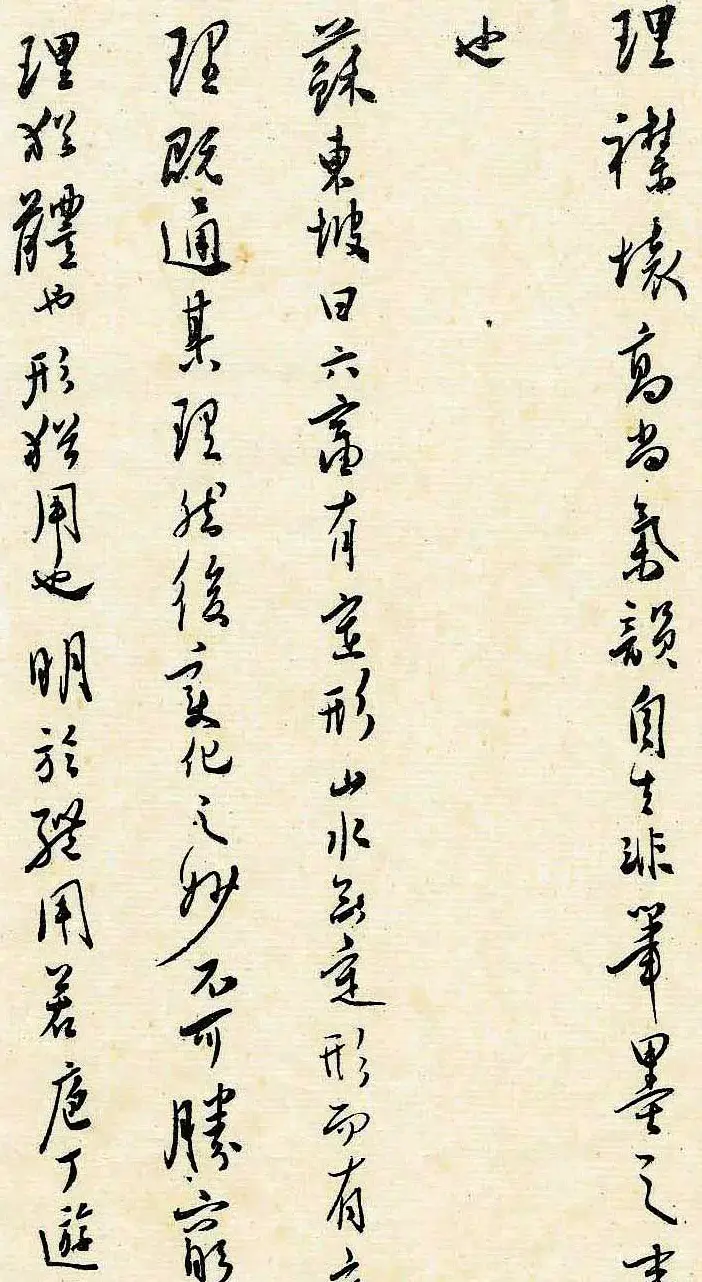 理襟懷高尚氣韻自生非筆墨之
也
蘇東坡曰六畜有定形山水無定形而有
理既通其理然後變化之妙不可勝窮
理猶體也形猶用也明於體用若庖丁遊